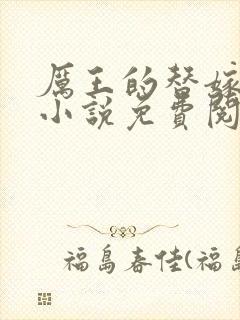 厲王的替嫁
小說免費閱
福島春佳(福島